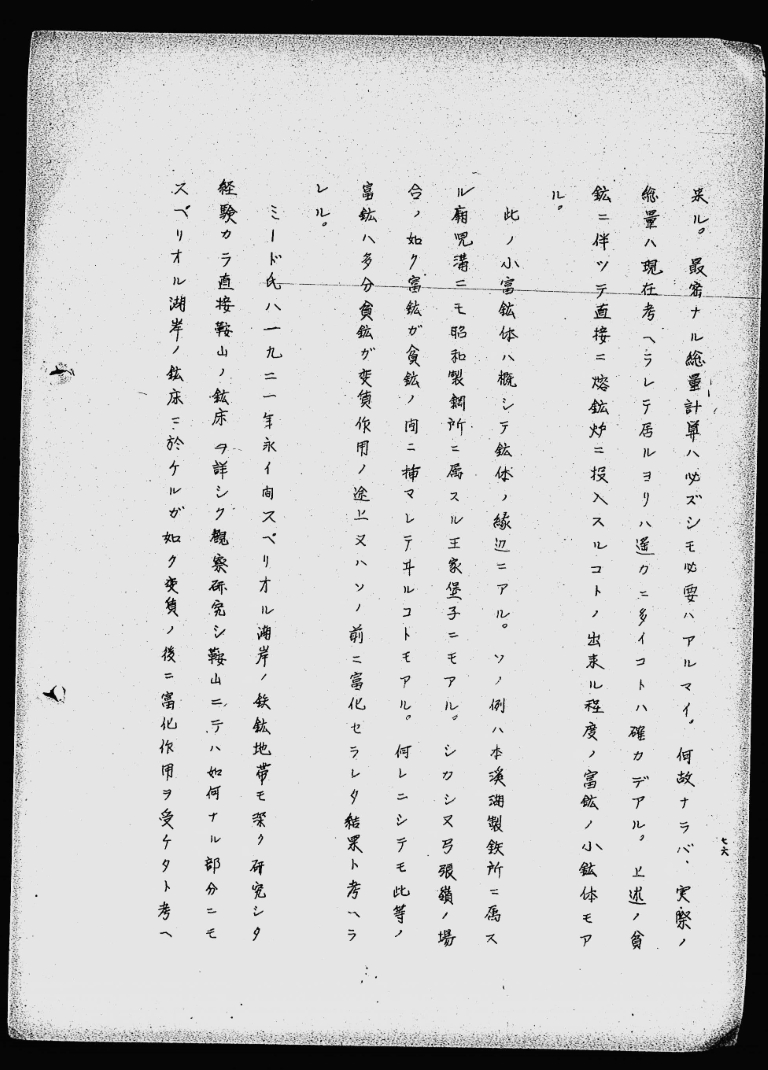 来ル。最密ナル総量計算ハ必ズシモ必要ハアルマイ。何故ナラバ、実際ノ
総量ハ現在考ヘラレテ居ルヨリハ遥カニ多イコトハ確カデアル。上述ノ貧
鉱ニ伴ツテ直接ニ熔鉱炉ニ投入スルコトノ出来ル程度ノ富鉱ノ小鉱体モア
ル。
此ノ小富鉱体ハ概シテ鉱体ノ縁辺ニアル。ソノ例ハ本渓湖製鉄所ニ属ス
ル廟児溝ニモ昭和製鋼所ニ属スル王家堡子ニモアル。シカシ又弓張嶺ノ場
合ノ如ク富鉱ガ貧鉱ノ間ニ挿マレテヰルコトモアル。何レニシテモ此等ノ
富鉱ハ多分貧鉱ガ変質作用ノ途上又ハソノ前ニ富化セラレタ結果ト考ヘラ
レル。
ミード氏ハ一九二一年永イ間スペリオル湖岸ノ鉄鉱地帯モ深ク研究シタ
経験カラ直接鞍山ノ鉱床ヲ詳シク観察研究シ鞍山ニテハ如何ナル部分ニモ
スペリオル湖岸ノ鉱床ニ於ケルガ如ク変質ノ後ニ富化作用ヲ受ケタト考ヘ
七六